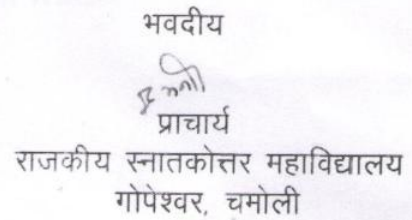 भवदीय
प्राचार्य
राजकीय स्नातकोत्तर महाविद्यालय
गोपेश्वर, चमोली